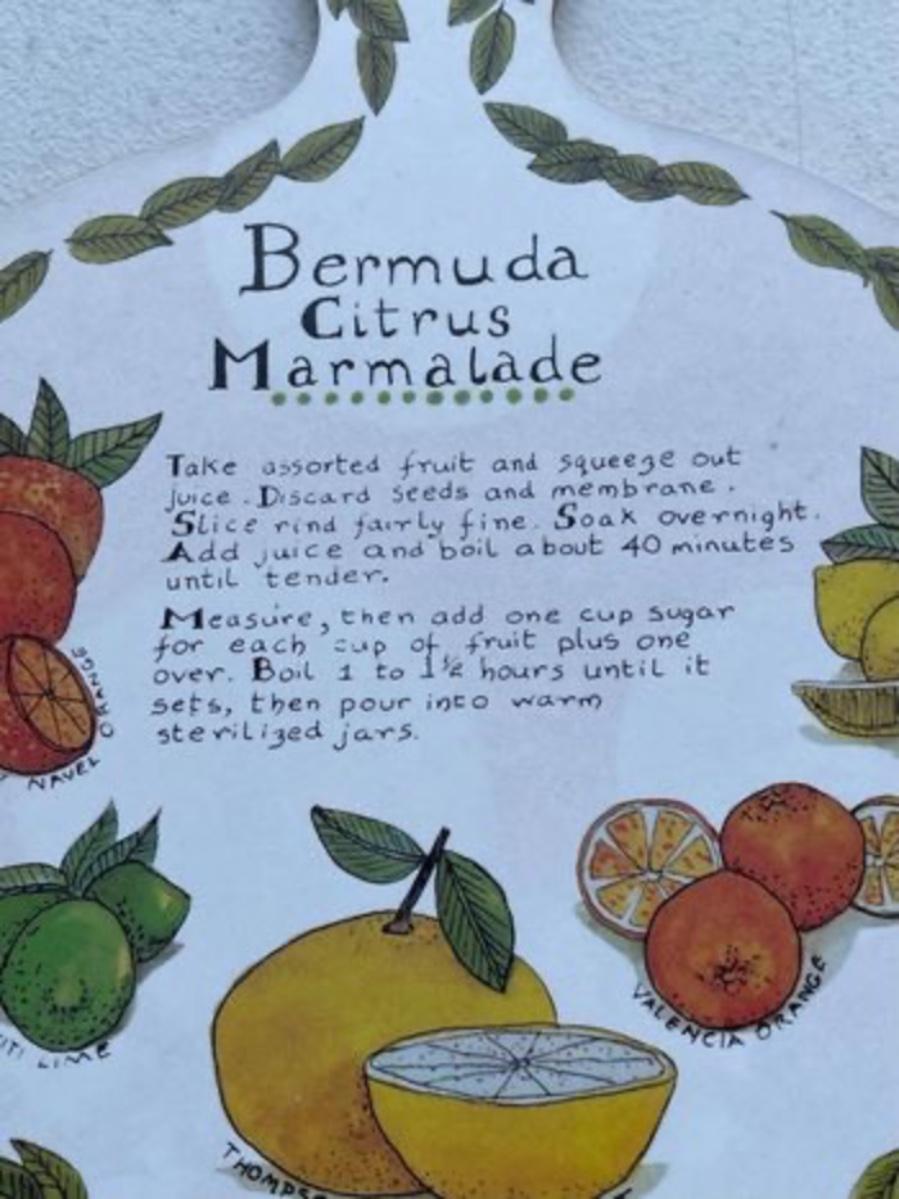 Bermuda
Citrus
Marmalade
Take assorted fruit and squeeze out
juice. Discard seeds and membrane.
Slice rind fairly fine. Soak overnight.
Add juice and boil about 40 minutes
until tender.
Measure, then add one cup sugar
for each cup of fruit plus one
over. Boil 1 to 1½ hours until it
sets, then pour into warm
sterilized jars.
NAVEL ORANGE
LIME
VALENCIA ORANGE